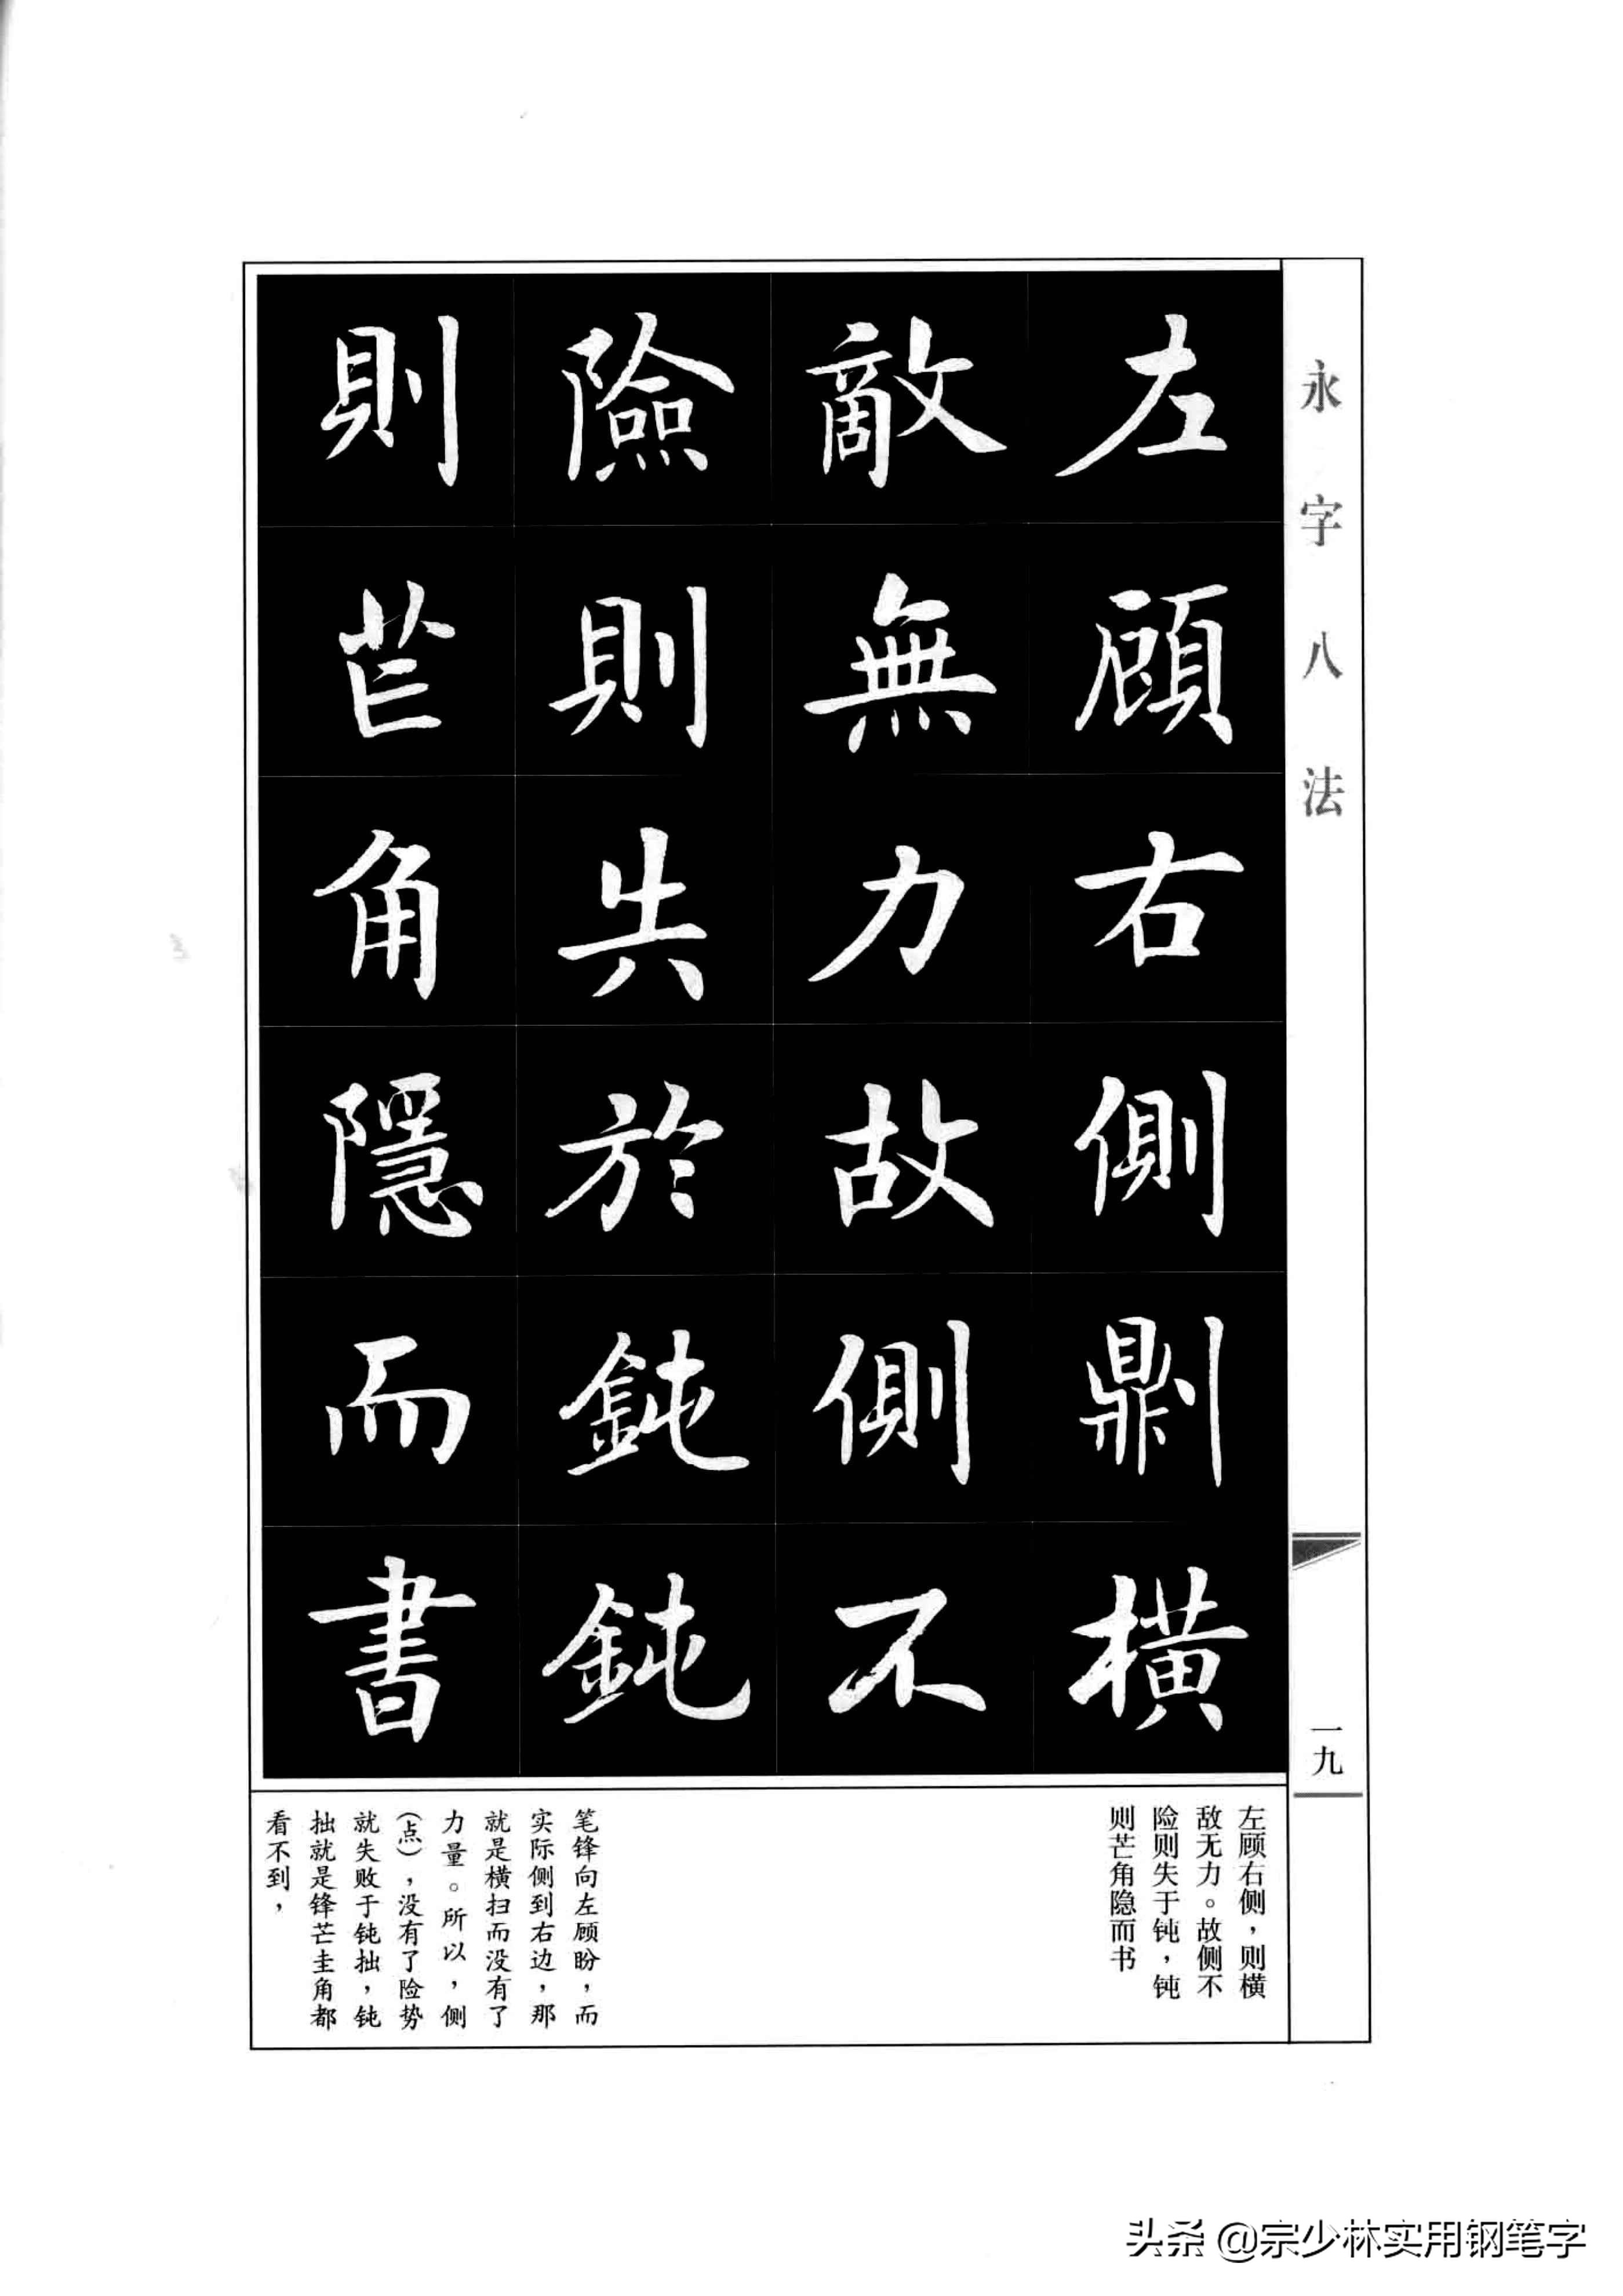 永字八法
一九
左顧右側鼎横
敵無力故側不
險則失於鈍鈍
則芒角隱而書
左顾右侧，则横
敌无力。故侧不
险则失于钝，钝
则芒角隐而书
笔锋向左顾盼，而
实际侧到右边，那
就是横扫而没有了
力量。所以，侧
（点），没有了险势
就失败于钝拙，钝
拙就是锋芒圭角都
看不到，
头条 @宗少林实用钢笔字